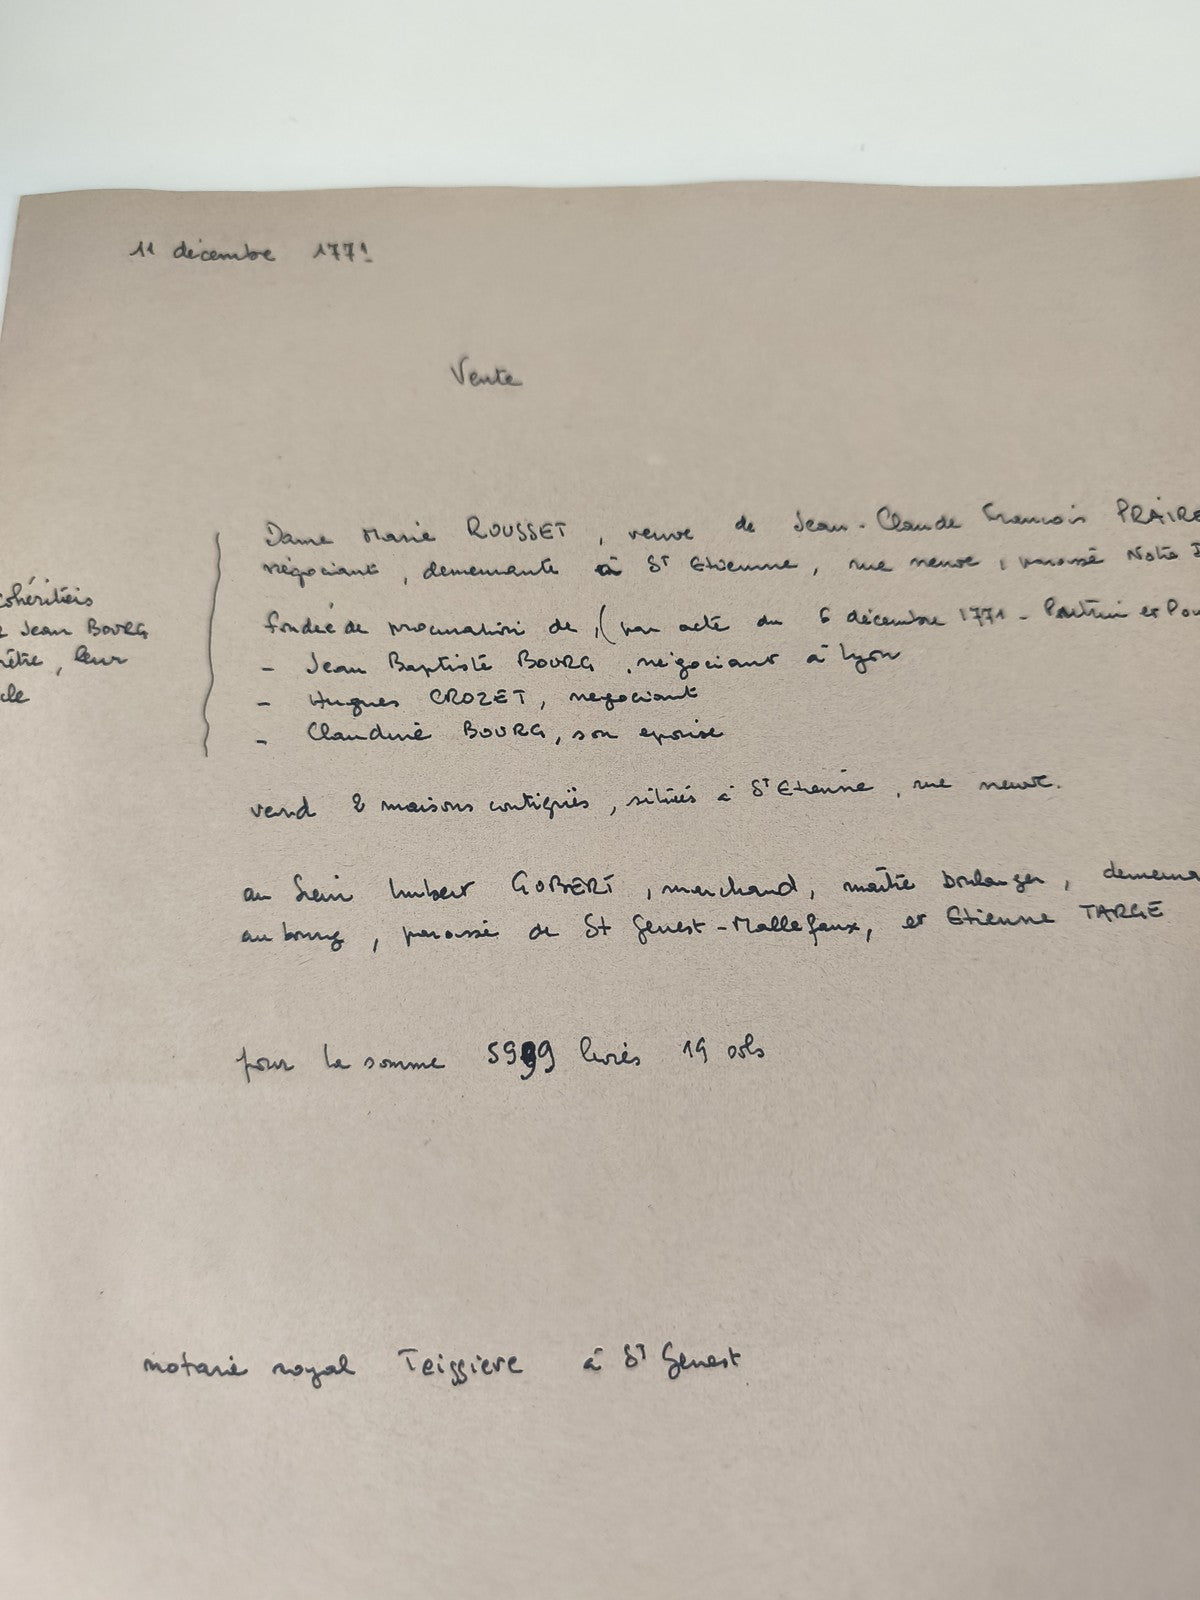 11 décembre 1771
Vente
Dame Marie ROUSSET, veuve de Jean-Claude François PRAIRE
négociant, demeurante à St Etienne, rue neuve, paroisse Notre
cohéritiers
Jean BOURG
leur
fondée de procuration de, (par acte du 6 décembre 1771 -
- Jean Baptiste BOURG, négociant à Lyon
- Hugues CROZET, négociant
- Claudine BOURG, son épouse
vend 2 maisons contiguës, situées à St Etienne, rue neuve.
au Sieur Imbert GOBERT, marchand, maître boulanger,
au bourg, paroisse de St Genest-Mallefaux, et Etienne TARGE
pour la somme 5999 livres 19 sols
notaire royal Teissiere à St Genest